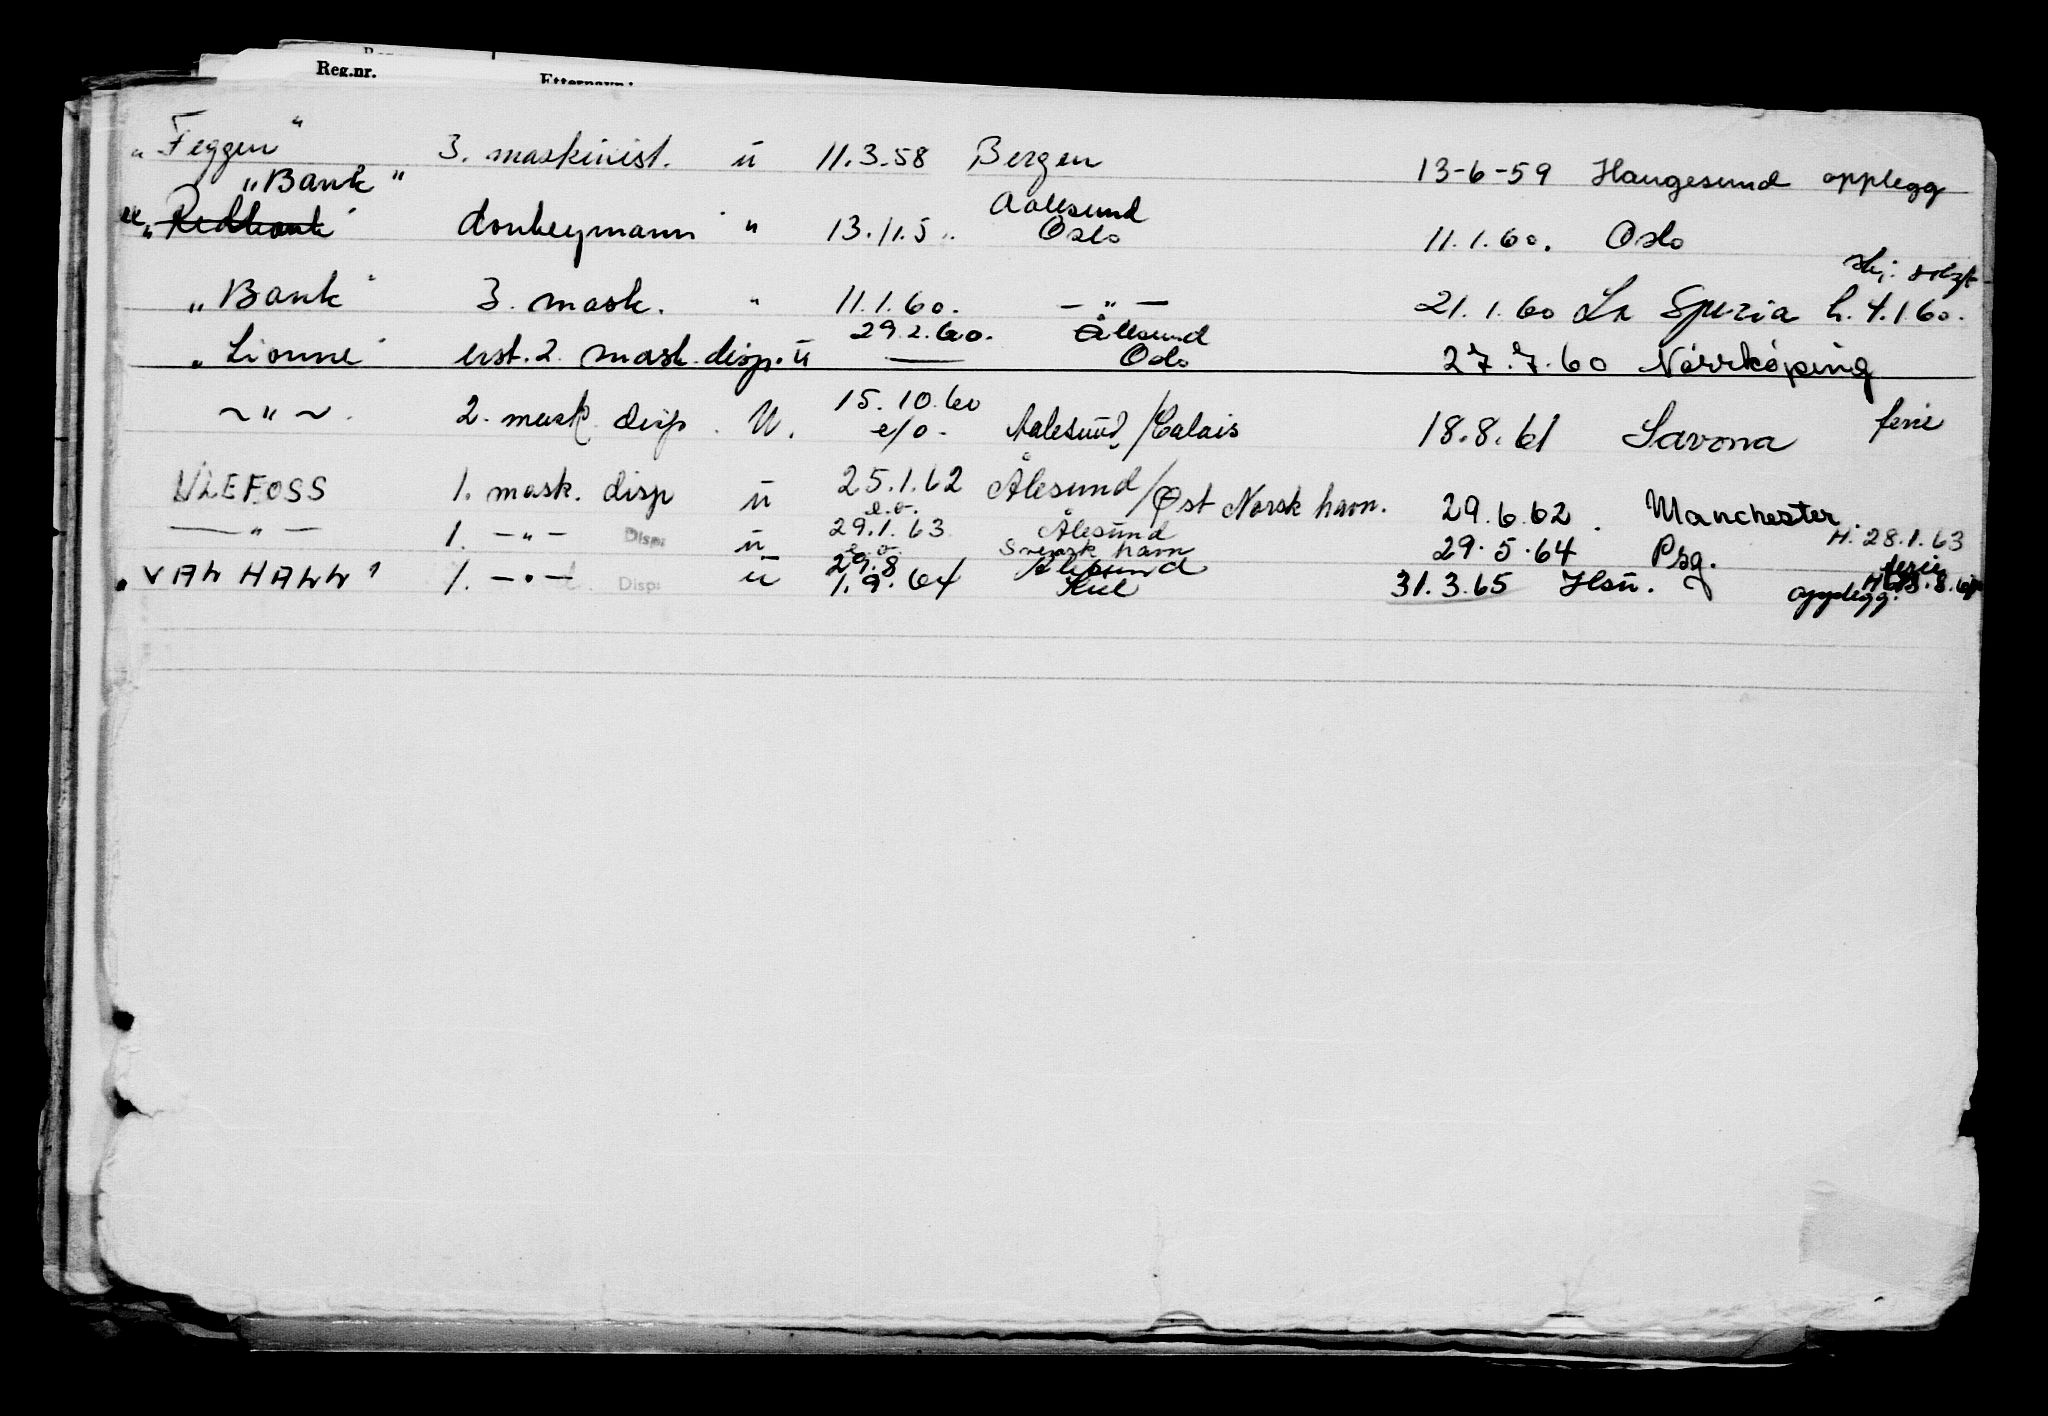 Reg.nr. Etternavn:
"Feggen" 3. maskinist. ū 11.3.58 Bergen 13-6-59 Haugesund opplegg
"Bank"
donkeymann " 13.11.5 Aalesund Oslo 11.1.60. Oslo
"Bank" 3. mask. " 11.1.60. — " — 21.1.60 La Spezia h. 4.1.60.
"Lionne" erst. 2. mask. disp. ū 29.2.60. Ålesund Oslo 27.7.60 Norrköping
~ " ~. 2. mask. disp. U. 15.10.60 e/o. Aalesund/Calais 18.8.61 Savona ferie
ULEFOSS 1. mask. disp ū 25.1.62 e.o. Ålesund/Øst Norsk havn. 29.6.62. Manchester.
— " — 1. — " — Disp: ū 29.1.63 e.o. Ålesund Svensk havn 29.5.64 Psg. H. 28.1.63 ferie
1. — " — Disp: ū 29.8 1.9.64 Ålesund Kiel 31.3.65 Hsū. opplegg.